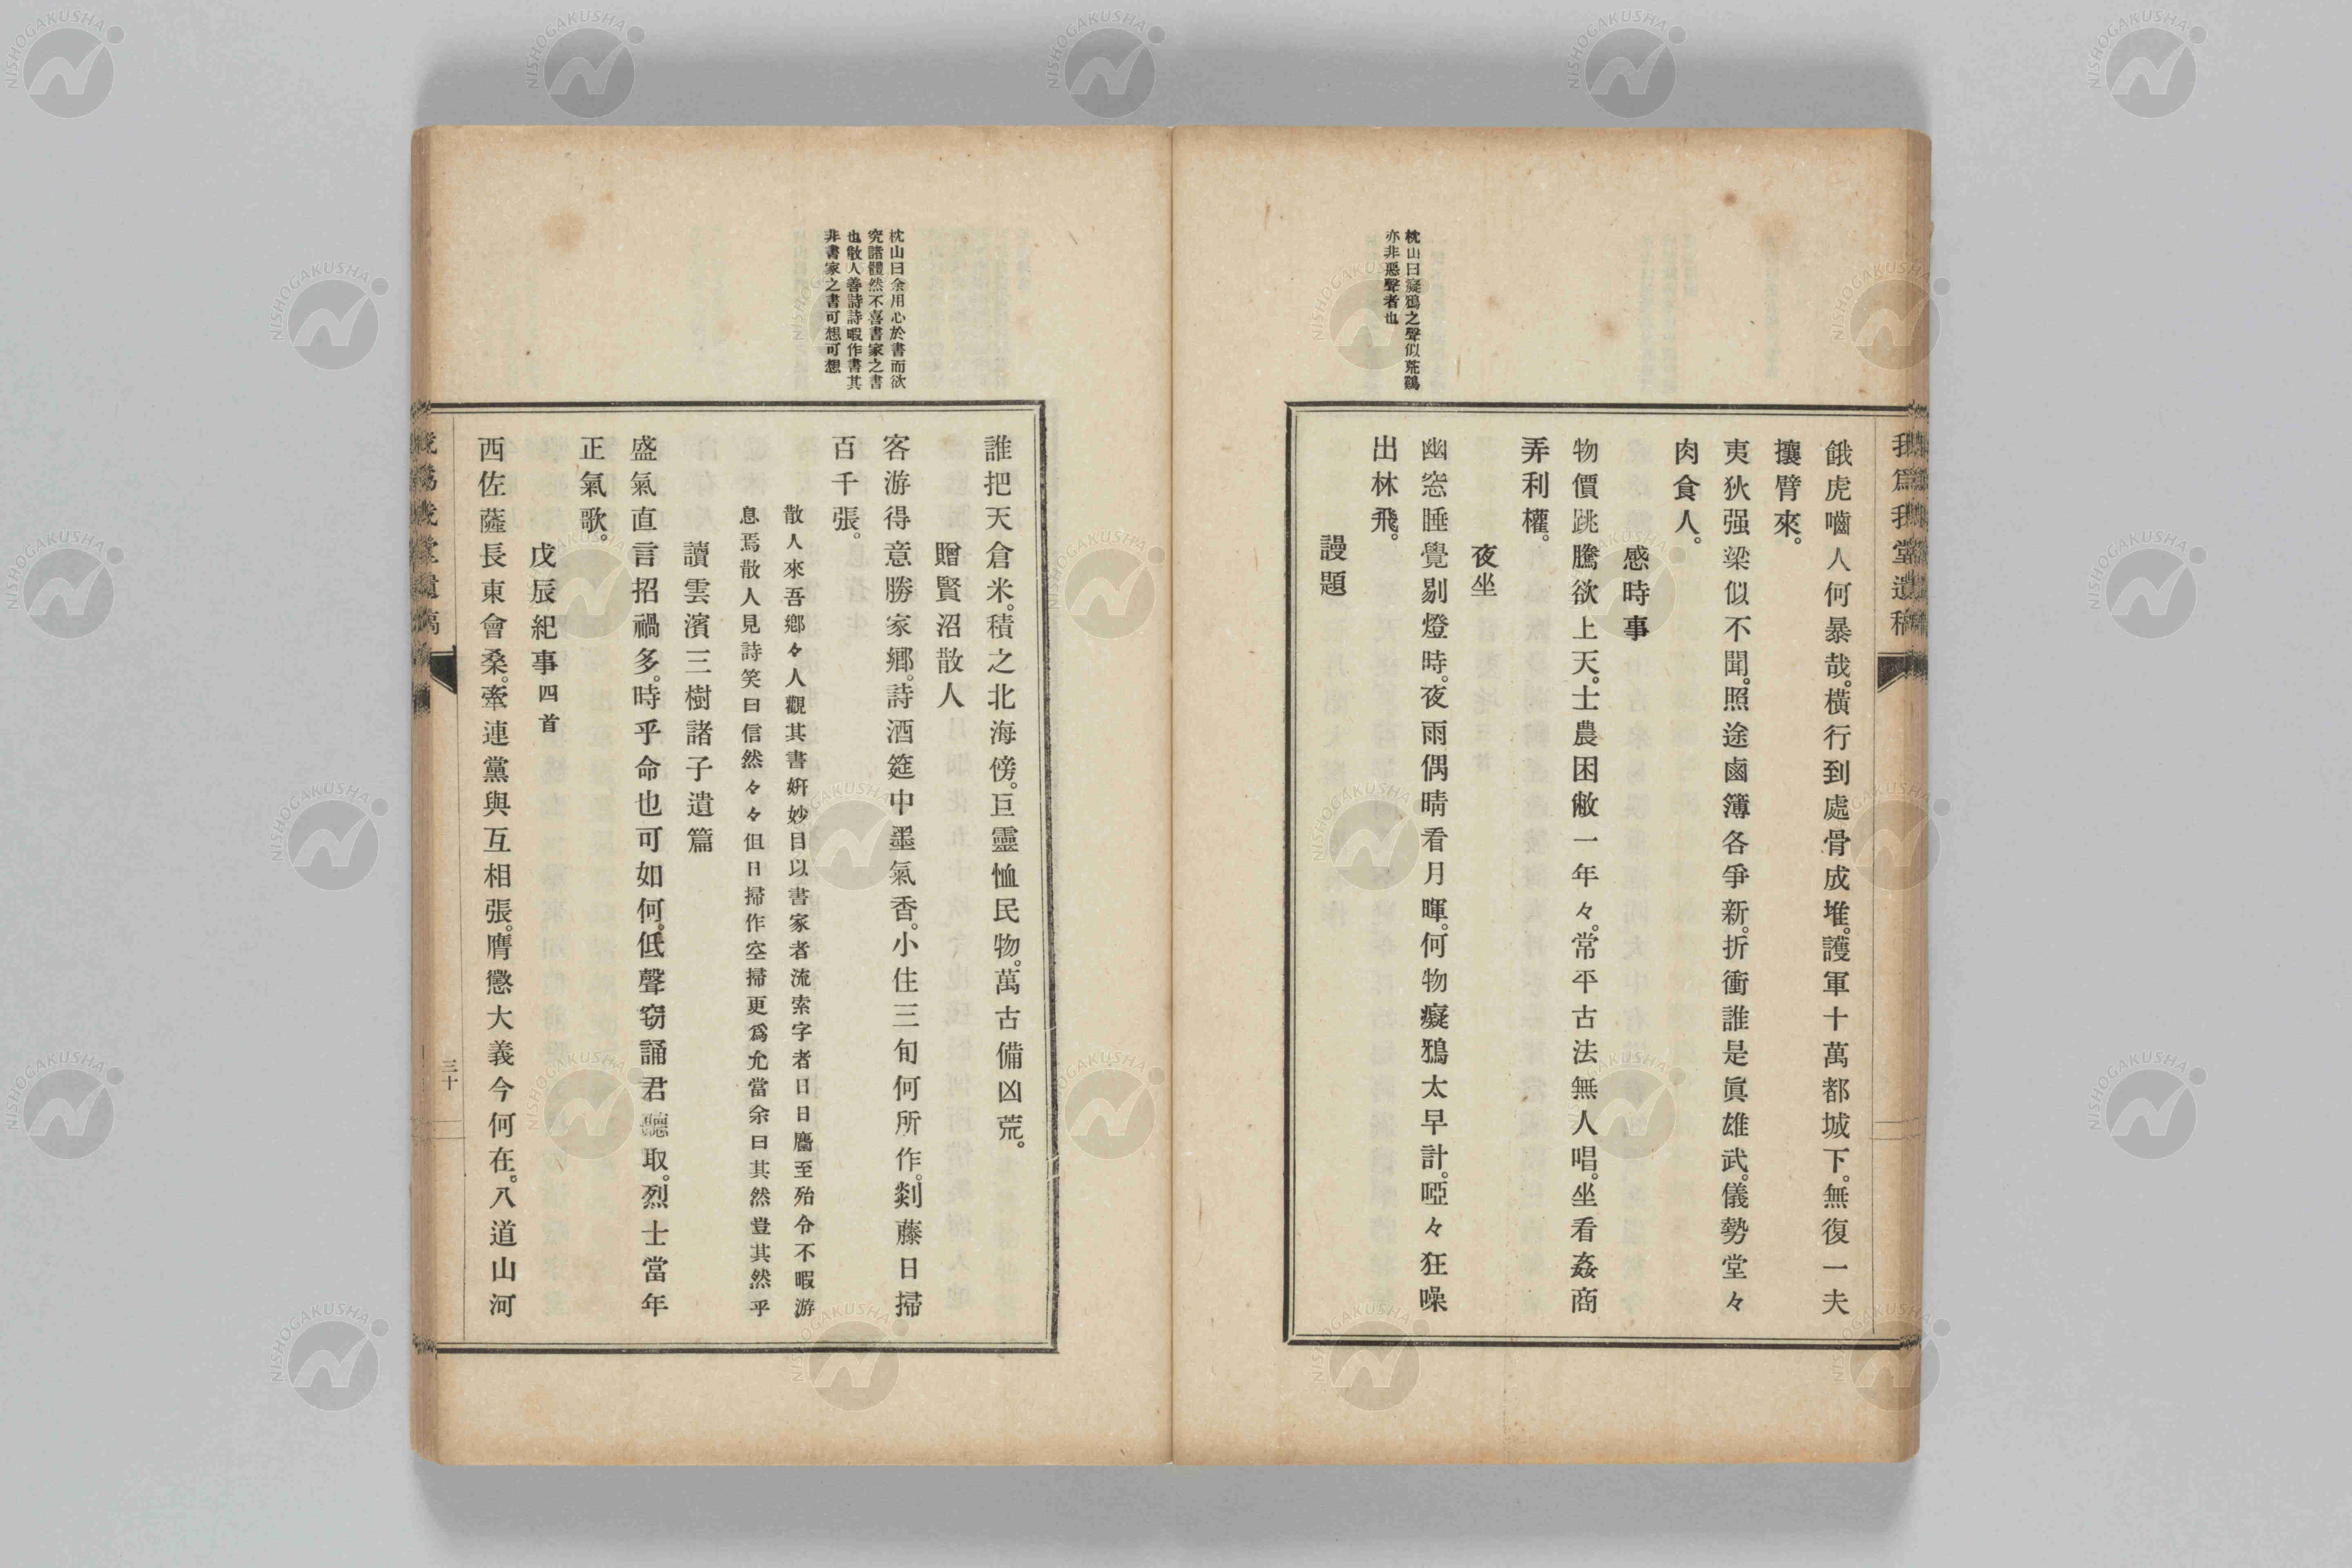 我爲我堂遺稿
餓虎嚙人何暴哉。橫行到處骨成堆。護軍十萬都城下。無復一夫
攘臂來。
夷狄强梁似不聞。照途鹵簿各爭新。折衝誰是眞雄武。儀勢堂々
肉食人。
感時事
物價跳騰欲上天。士農困敝一年々。常平古法無人唱。坐看姦商
弄利權。
夜坐
枕山曰癡鴉之聲似荒鷄
亦非惡聲者也
幽窓睡覺剔燈時。夜雨偶晴看月暉。何物癡鴉太早計。啞々狂噪
出林飛。
謾題
誰把天倉米。積之北海傍。巨靈恤民物。萬古備凶荒。
贈賢沼散人
枕山曰余用心於書而欲
究諸體然不喜書家之書
也散人善詩詩暇作書其
非書家之書可想可想
客游得意勝家鄉。詩酒筵中墨氣香。小住三旬何所作。剡藤日掃
百千張。
散人來吾鄉々人觀其書姸妙目以書家者流索字者日日麕至殆令不暇游
息焉散人見詩笑曰信然々々但日掃作空掃更爲允當余曰其然豈其然乎
讀雲濱三樹諸子遺篇
盛氣直言招禍多。時乎命也可如何。低聲窃誦君聽取。烈士當年
正氣歌。
戊辰紀事四首
西佐薩長東會桑。牽連黨與互相張。膺懲大義今何在。八道山河
我爲我堂遺稿
三十
NISHOGAKUSHA